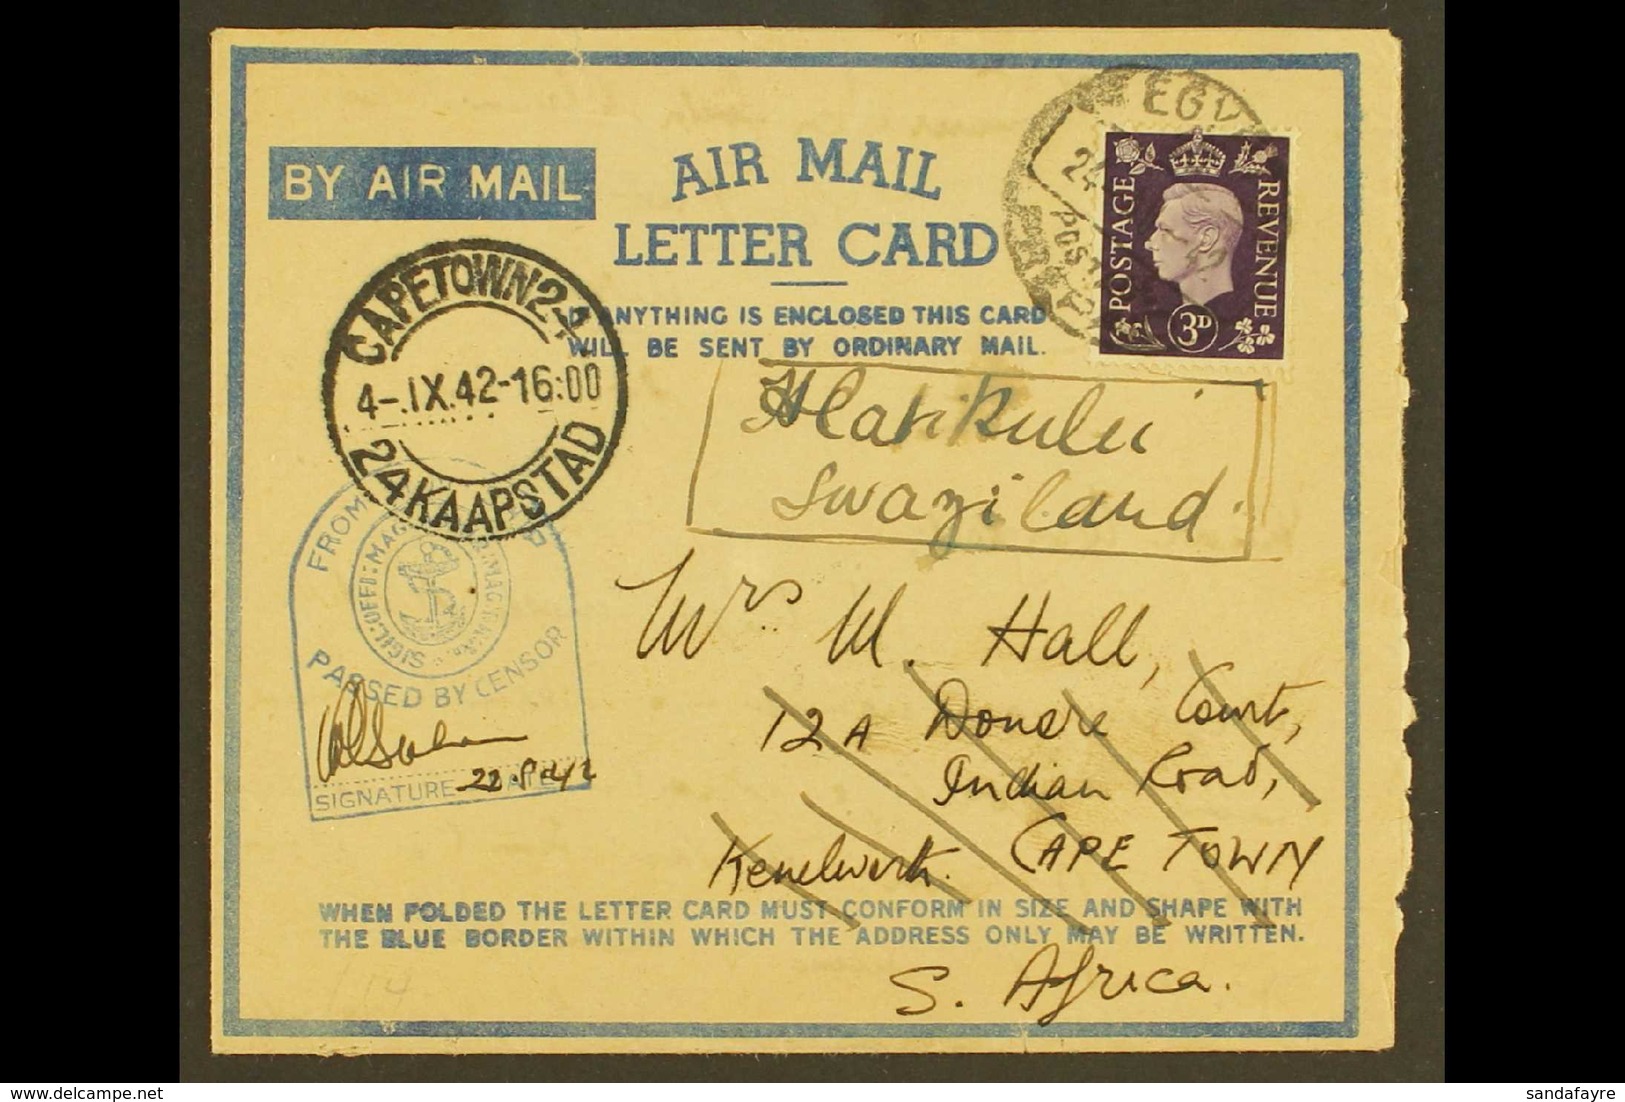 BY AIR MAIL
AIR MAIL
LETTER CARD
IF ANYTHING IS ENCLOSED THIS CARD
WILL BE SENT BY ORDINARY MAIL.
EGY
24
POST
POSTAGE
REVENUE
3D
CAPETOWN 24
4-.IX.42-16:00
24 KAAPSTAD
Hlatikulu
Swaziland.
FROM
PASSED BY CENSOR
SIGNATURE
Mrs M. Hall,
12A Donore Court,
Indian Road,
Kenelworth. CAPE TOWN
WHEN FOLDED THE LETTER CARD MUST CONFORM IN SIZE AND SHAPE WITH
THE BLUE BORDER WITHIN WHICH THE ADDRESS ONLY MAY BE WRITTEN.
S. Africa.
sandafayre